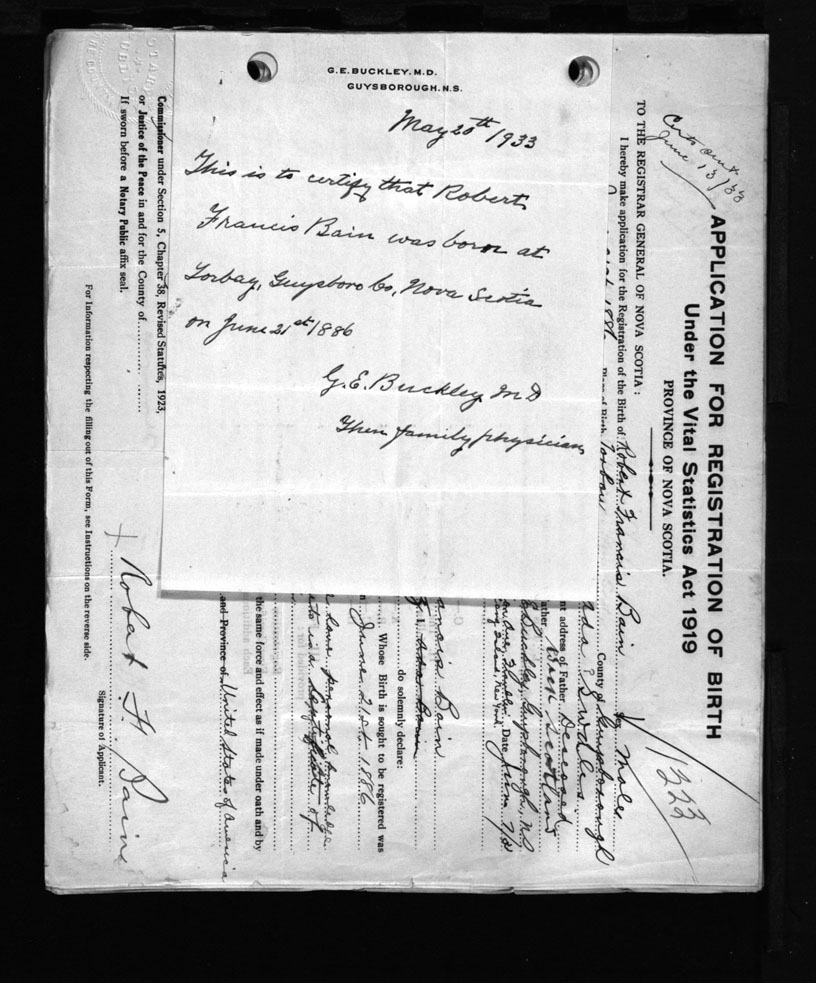 G.E. BUCKLEY, M.D.
GUYSBOROUGH, N.S.
May 20th/1933
This is to certify that Robert
Francis Bain was born at
Torbay, Guysboro Co, Nova Scotia
on June 21st/1886
G.E. Buckley M D
Then family physician
June 13/33
APPLICATION FOR REGISTRATION OF BIRTH
Under the Vital Statistics Act 1919
PROVINCE OF NOVA SCOTIA.
1323
TO THE REGISTRAR GENERAL OF NOVA SCOTIA:
I hereby make application for the Registration of the Birth of Robert Francis Bain Sex Male
1886 Place of Birth Torbay County of Guysborough
nt address of Father Deceased
ather
Buckley, Guysborough, N.S.
New York Date June 7/33
Bain
do solemnly declare:
Whose Birth is sought to be registered was
n June 21st. 1886
have personal knowledge
the same force and effect as if made under oath and by
and Province of United States of America
Commissioner under Section 5, Chapter 38, Revised Statutes, 1923,
or Justice of the Peace in and for the County of
If sworn before a Notary Public affix seal.
Robert F. Bain
Signature of Applicant.
For Information respecting the filling out of this Form, see Instructions on the reverse side.